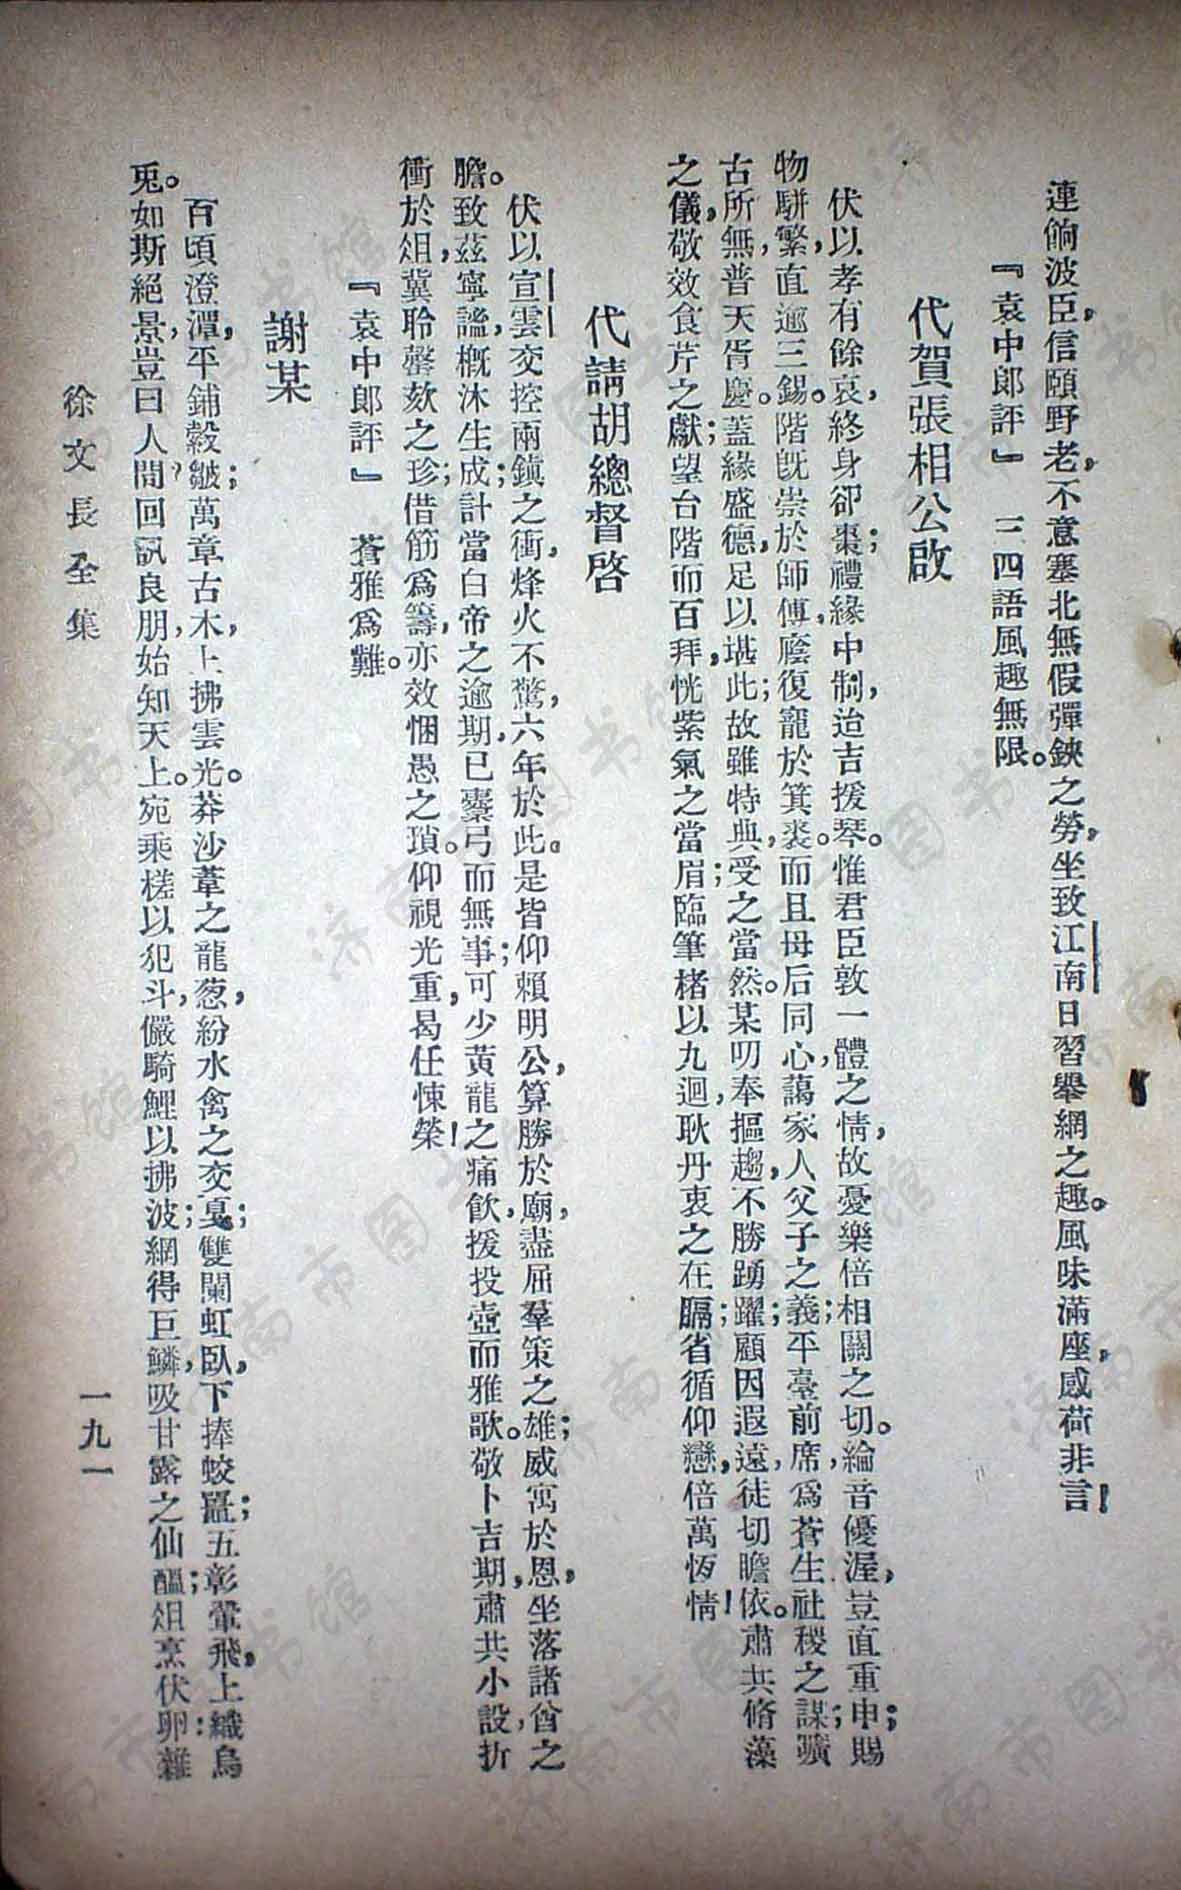 連餉波臣，信頤野老，不意塞北無假彈鋏之勞，坐致江南日習舉網之趣。風味滿座，感荷非言！
『袁中郞評』　三四語風趣無限。
代賀張相公啟
伏以孝有餘哀，終身卻棗；禮緣中制，迨吉援琴。惟君臣敦一體之情，故憂樂倍相關之切。綸音優渥，豈直重申；賜
物駢繁，直逾三錫。階旣崇於師傅，廕復寵於箕裘。而且母后同心，藹家人父子之義；平臺前席，爲蒼生社稷之謀；曠
古所無，普天胥慶。蓋緣盛德，足以堪此；故雖特典，受之當然。某叨奉摳趨，不勝踴躍；顧因遐遠，徒切瞻依。肅共脩藻
之儀，敬效食芹之獻；望台階而百拜，恍紫氣之當眉；臨筆楮以九迴，耿丹衷之在膈；省循仰戀，倍萬恆情！
代請胡總督啓
伏以宣雲交控兩鎭之衝，烽火不驚，六年於此。是皆仰賴明公，算勝於廟，盡屈羣策之雄；威寓於恩，坐落諸酋之
膽。致茲寧謐，槪沐生成；計當白帝之逾期，已櫜弓而無事；可少黃龍之痛飮，援投壺而雅歌。敬卜吉期，肅共小設，折
衝於俎，冀聆罄欬之珍；借筯爲籌，亦效悃愚之瑣。仰視光重，曷任悚榮！
『袁中郞評』　蒼雅爲難。
謝某
百頃澄潭，平鋪縠皺；萬章古木，上拂雲光。莽沙葦之蘢葱，紛水禽之交戛；雙闌虹臥，下捧蛟鼉；五彰翬飛，上織烏
兎。如斯絕景，豈曰人間？回訊良朋，始知天上。宛乘槎以犯斗，儼騎鯉以拂波；網得巨鱗，吸甘露之仙醞；俎烹伏卵，雜
徐文長全集
一九一
济南市图书馆